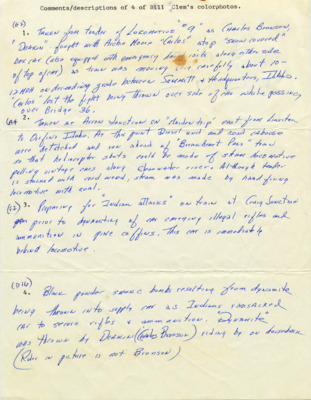 Comments/descriptions of 4 of Bill Clem's colorphotos.
(B3)
1. Taken from tender of Locomotive "#9" as Charles Bronson,
"Deakin" fought with Archie Moore "Carlos" atop "snow covered"
box car (also equipped with emergency hand rails along either side
of top of car) as train was moving very carefully about 10-
12 MPH on descending grade between Summit & Headquarters, Idaho.
Carlos lost the fight being thrown over side of car while passing
over Bridge 36.
2. Taken at Arrow Junction on "deadhead" east from Lewiston
to Orofino Idaho. At this point Diesel unit and road caboose
were detached and ran ahead of "Breakheart Pass" train
so that helicopter shots could be made of steam locomotive
pulling vintage cars along Clearwater river. Although tender
is stacked with cord wood, steam was made by hand firing
locomotive with coal.
3. Preparing for "Indian Attacks" on train at Craig Junction
prior to of car carrying illegal rifles and
ammunition in pine coffins. This car is immediately
behind locomotive.
(D16)
4. Black powder smoke bomb resulting from dynamite
being thrown into supply car as Indians ransacked
car to secure rifles & ammunition. "Dynamite"
was thrown by Deakin (Charles Bronson) riding by on horseback
(Rider in picture is not Bronson)